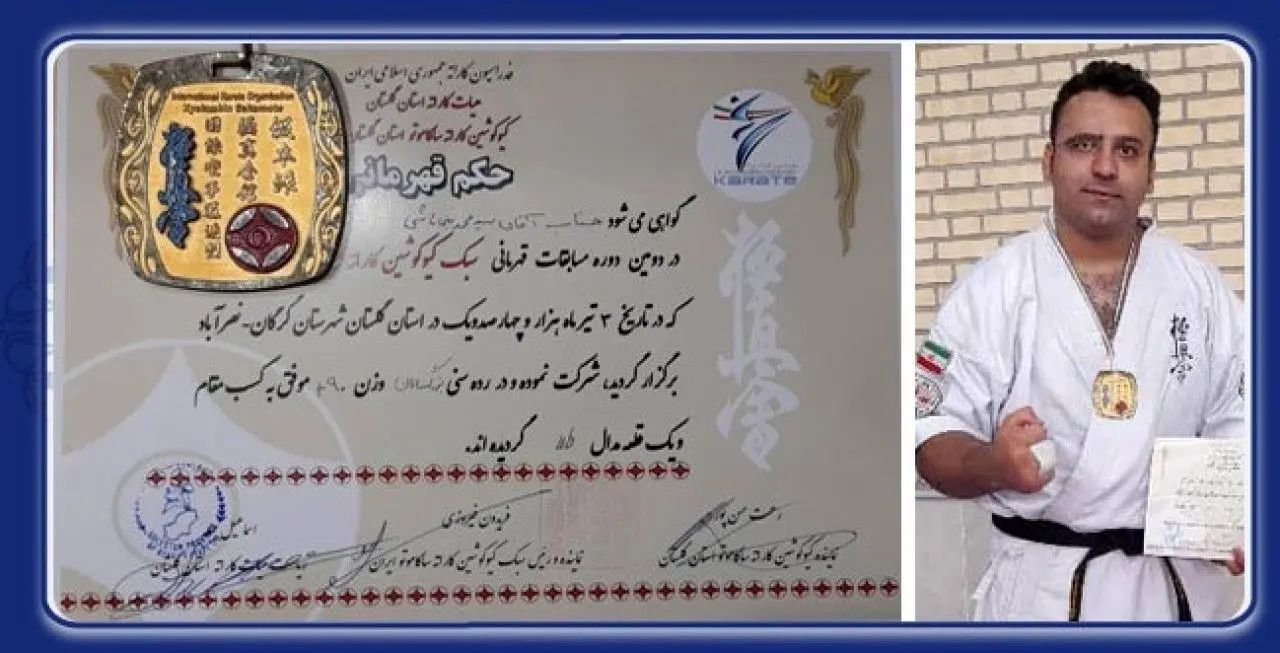 فدراسیون کاراته جمهوری اسلامی ایران
هیات کاراته استان گلستان
کیوکوشین کاراته ساکاموتو استان گلستان
حکم قهرمانی
KARATE
International Karate Organization
Kyokushin Sakamoto
極真会
گواهی می شود جناب آقای سید محمد
در دومین دوره مسابقات قهرمانی سبک کیوکوشین کاراته
که در تاریخ ۳ تیر ماه هزار و چهارصد و یک در استان گلستان شهرستان گرگان - نصرآباد
برگزار گردید، شرکت نموده و در رده سنی بزرگسالان وزن ۹۰+ موفق به کسب مقام
و یک قطعه مدال طلا گردیده اند.
رحمت حسن پور
نماینده کیوکوشین کاراته ساکاموتو استان گلستان
فریدون فیروزی
نماینده و رئیس سبک کیوکوشین کاراته ساکاموتو ایران
اسماعیل
ریاست هیات کاراته استان گلستان
極真会